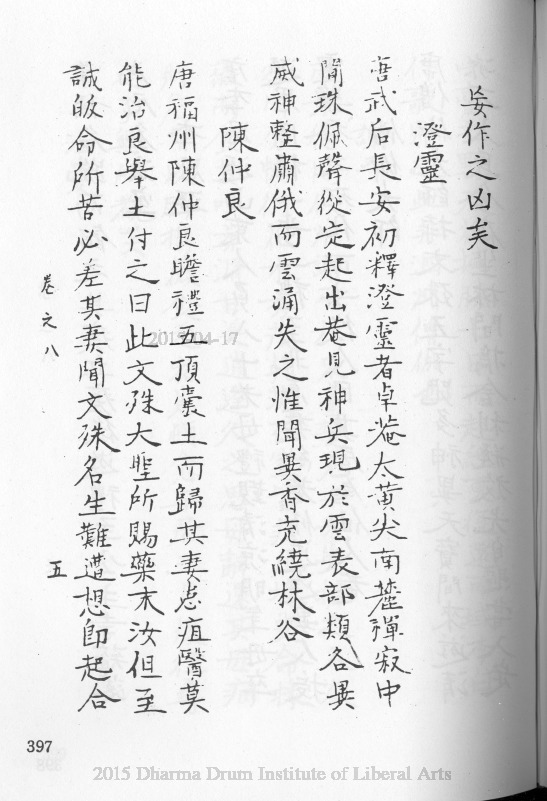 妄作之凶矣
澄靈
唐武后長安初釋澄靈者卓菴太黃尖南麓禪寂中
聞珠佩聲從定起出菴見神兵現於雲表部類各異
威神整肅俄而雲涌失之惟聞異香充繞林谷
陳仲良
唐福州陳仲良瞻禮五頂囊土而歸其妻患疽醫莫
能治良舉土付之曰此文殊大聖所賜藥末汝但至
誠皈命所苦必差其妻聞文殊名生難遭想即起合
卷之八
五
397
2017-04-17
2015 Dharma Drum Institute of Liberal Arts